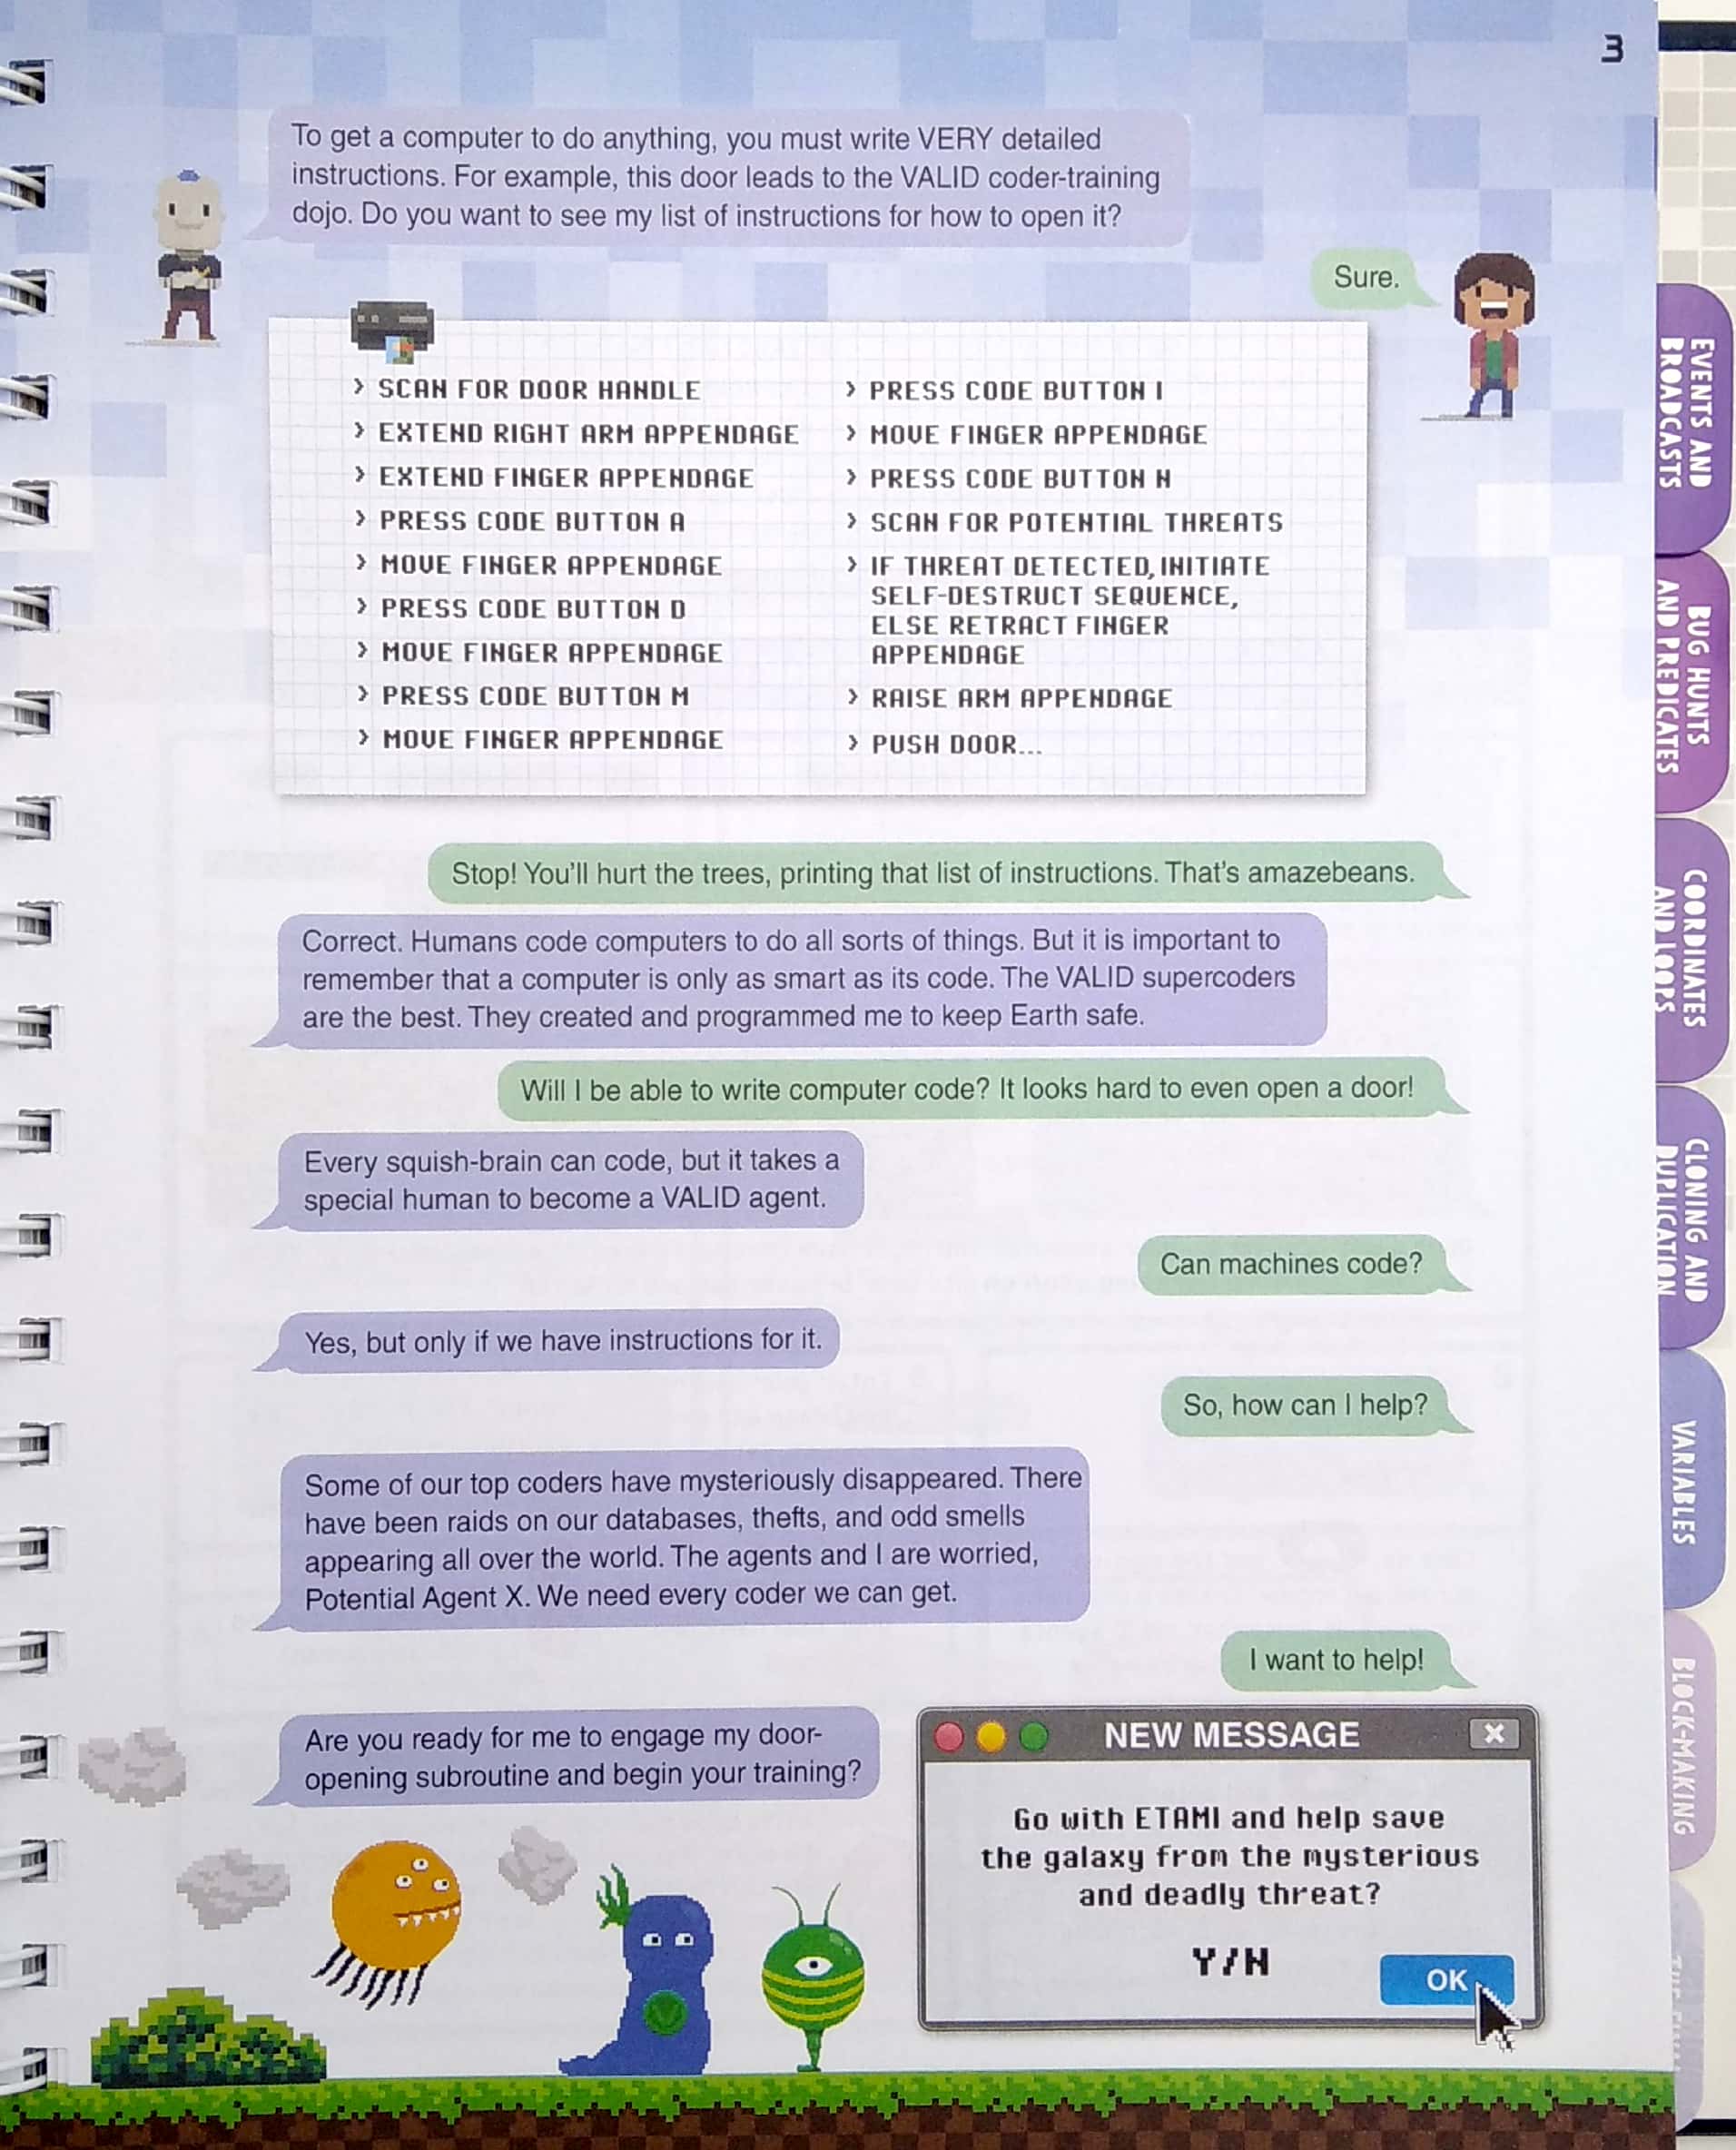 3
To get a computer to do anything, you must write VERY detailed
instructions. For example, this door leads to the VALID coder-training
dojo. Do you want to see my list of instructions for how to open it?
Sure.
› SCAN FOR DOOR HANDLE
› EXTEND RIGHT ARM APPENDAGE
› EXTEND FINGER APPENDAGE
› PRESS CODE BUTTON A
› MOVE FINGER APPENDAGE
› PRESS CODE BUTTON D
› MOVE FINGER APPENDAGE
› PRESS CODE BUTTON M
› MOVE FINGER APPENDAGE
› PRESS CODE BUTTON I
› MOVE FINGER APPENDAGE
› PRESS CODE BUTTON N
› SCAN FOR POTENTIAL THREATS
› IF THREAT DETECTED, INITIATE
SELF-DESTRUCT SEQUENCE,
ELSE RETRACT FINGER
APPENDAGE
› RAISE ARM APPENDAGE
› PUSH DOOR...
Stop! You'll hurt the trees, printing that list of instructions. That's amazebeans.
Correct. Humans code computers to do all sorts of things. But it is important to
remember that a computer is only as smart as its code. The VALID supercoders
are the best. They created and programmed me to keep Earth safe.
Will I be able to write computer code? It looks hard to even open a door!
Every squish-brain can code, but it takes a
special human to become a VALID agent.
Can machines code?
Yes, but only if we have instructions for it.
So, how can I help?
Some of our top coders have mysteriously disappeared. There
have been raids on our databases, thefts, and odd smells
appearing all over the world. The agents and I are worried,
Potential Agent X. We need every coder we can get.
I want to help!
Are you ready for me to engage my door-
opening subroutine and begin your training?
NEW MESSAGE
Go with ETAMI and help save
the galaxy from the mysterious
and deadly threat?
Y/N
OK
EVENTS AND
BROADCASTS
BUG HUNTS
AND PREDICATES
COORDINATES
AND LOOPS
CLONING AND
DUPLICATION
VARIABLES
BLOCK-MAKING